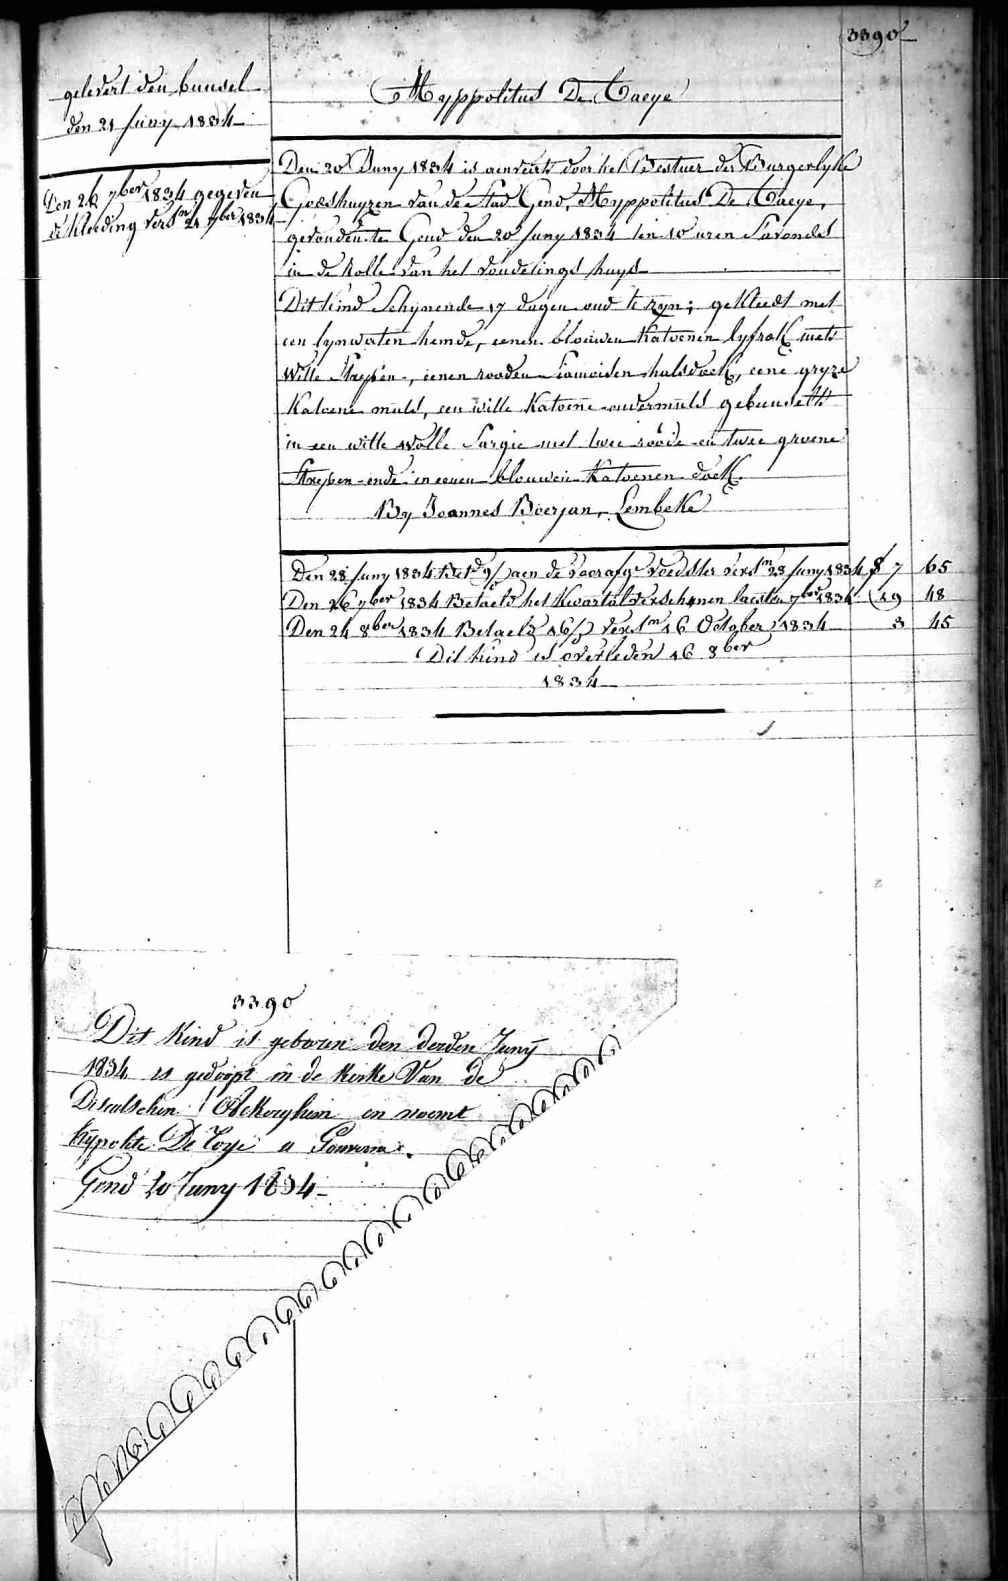 3390
gelevert den bunsel
den 21 Juny 1834
Hyppolitus De Taeye
Den 26 7ber 1834 gegeven
de kleeding versn 21 7ber 1834
Den 20 Juny 1834 is aenveert door het Bestuer der Burgerlyke
Godshuyzen van de Stad Gend, Hyppolitus De Taeye,
gevonden te Gend den 20 Juny 1834 ten 10 uren Savonds
in de Rolle van het vondelings huys
Dit kind Schynende 17 dagen oud te zyn; gekleed met
een lynwaten hemde, eenen blouwen Katoenen lyfrok mets
Witte Strepen, eenen rooden Siamoisen halsdoek, eene gryze
Katoene muts, een witte Katoene ondermuts gebunselt
in een witte wolle Sargie met twee roode en twee groene
Strepen ende in eenen blouwen Katoenen doek.
By Joannes Boerjan, Lembeke
Den 28 Juny 1834 Betd 9/ aen de voorafge voedster versn 28 Juny 1834 f 7 65
Den 26 7ber 1834 Betaeld het Kwartal verschenen laesten 7ber 1834 19 48
Den 24 8ber 1834 Betaeld 16/ versn 16 October 1834 3 45
Dit kind is overleden 16 8ber
1834
3390
Dit Kind is geboren den derden Juny
1834 is gedoopt in de Kerke Van de
Discalschen
en noemt
Hypolite De Toye a Gand
Gend 20 Juny 1834